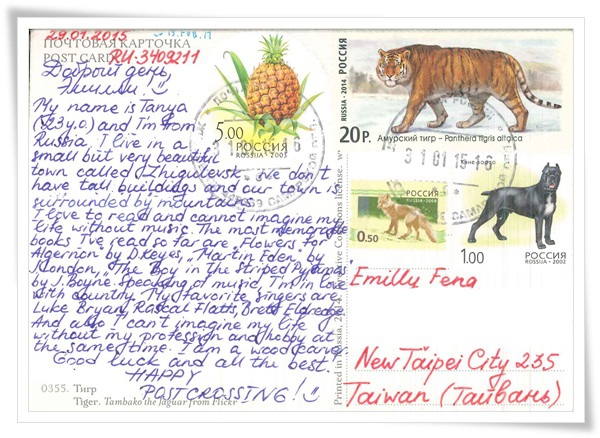 29.01.2015
ПОЧТОВАЯ КАРТОЧКА
POST CARD
RU-3409211
Добрый день,
Эмилли! :)
My name is Tanya
(23 y.o.) and I'm from
Russia. I live in a
small but very beautiful
town called Zhigulevsk. We don't
have tall buildings and our town is
surrounded by mountains.
I love to read and cannot imagine my
life without music. The most memorable
books I've read so far are „Flowers for
Algernon" by D.Keyes, „Martin Eden" by
J.London, „The Boy in the Striped Pyjamas"
by J.Boyne. Speaking of music, I'm in love
with country. My favorite singers are
Luke Bryan, Rascal Flatts, Brett Eldredge.
And also I can't imagine my life
without my profession and hobby at
the same time. I am a woodcarver.
Good luck and all the best!
HAPPY
POSTCROSSING! :)
0355. Тигр
Tiger. Tambako the Jaguar from Flickr
5.00
РОССИЯ
ROSSIJA 2003
РОССИЯ
RUSSIA · 2014
20 Р.
Амурский тигр – Panthera tigris altaica
31 01 15-16
0.50
РОССИЯ
RUSSIA 2008
Кане-корсо
1.00
РОССИЯ
ROSSIJA 2002
Emilly Feng
New Taipei City 235
Taiwan (Тайвань)